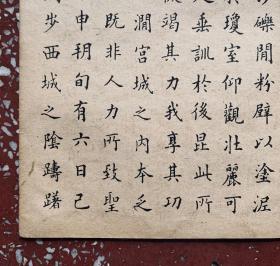 礫閒粉壁以塗泥
瓊室仰觀壯麗可
垂訓於後昆此所
竭其力我享其功
澗宮城之內本乏
既非人力所致聖
申朔旬有六日己
步西城之陰躊躇